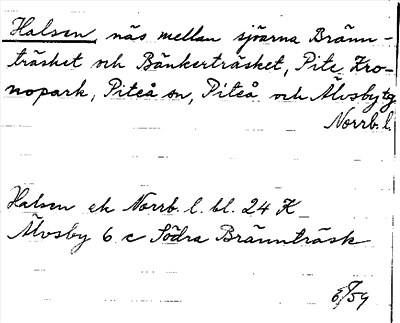 Halsen, näs mellan sjöarna Bränn-
träsket och Bänkerträsket, Pite Kro-
nopark, Piteå sn, Piteå och Älvsby tg
Norrb. l.
Halsen ek Norrb. l. bl. 24 K
Älvsby 6 c Södra Brännträsk